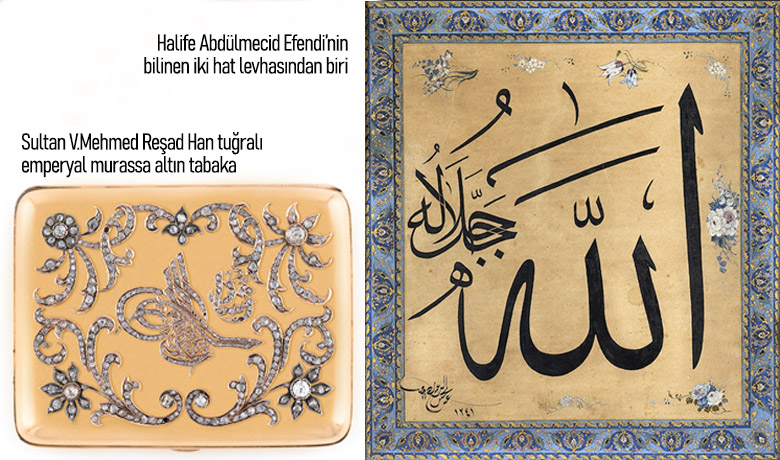 Halife Abdülmecid Efendi'nin
bilinen iki hat levhasından biri
Sultan V.Mehmed Reşad Han tuğralı
emperyal murassa altın tabaka
الله
جل جلاله
١٣٤١